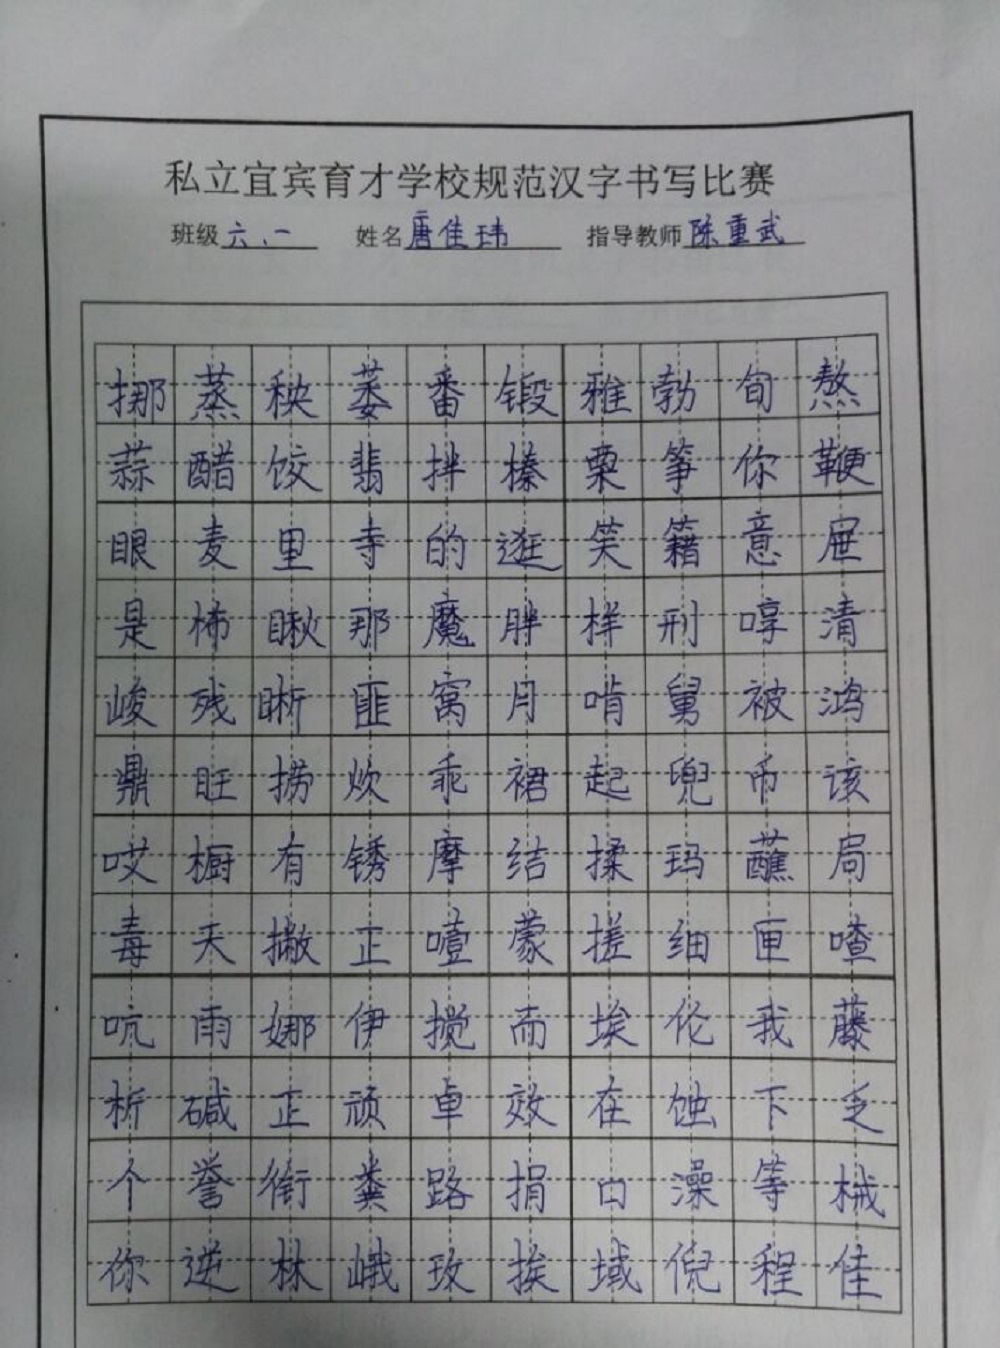 私立宜宾育才学校规范汉字书写比赛
班级 六.一 姓名 唐佳玮 指导教师 陈重武
挪蒸秧萎番锻雅勃旬熬
蒜醋饺翡拌榛栗筝你鞭
眼麦里寺的逛笑籍意屉
是柿瞅那魔胖样刑哼清
峻残晰匪窝月啃舅被鸿
鼎旺捞炊乖裙起兜币该
哎橱有锈摩结揉玛蘸局
毒天撇正噎蒙搓细匣喳
吭雨娜伊搅而埃伦我藤
析碱正顽卓效在蚀下乏
个誉衔粪路捐口澡等械
你逆林峨玫挨域倪程佳